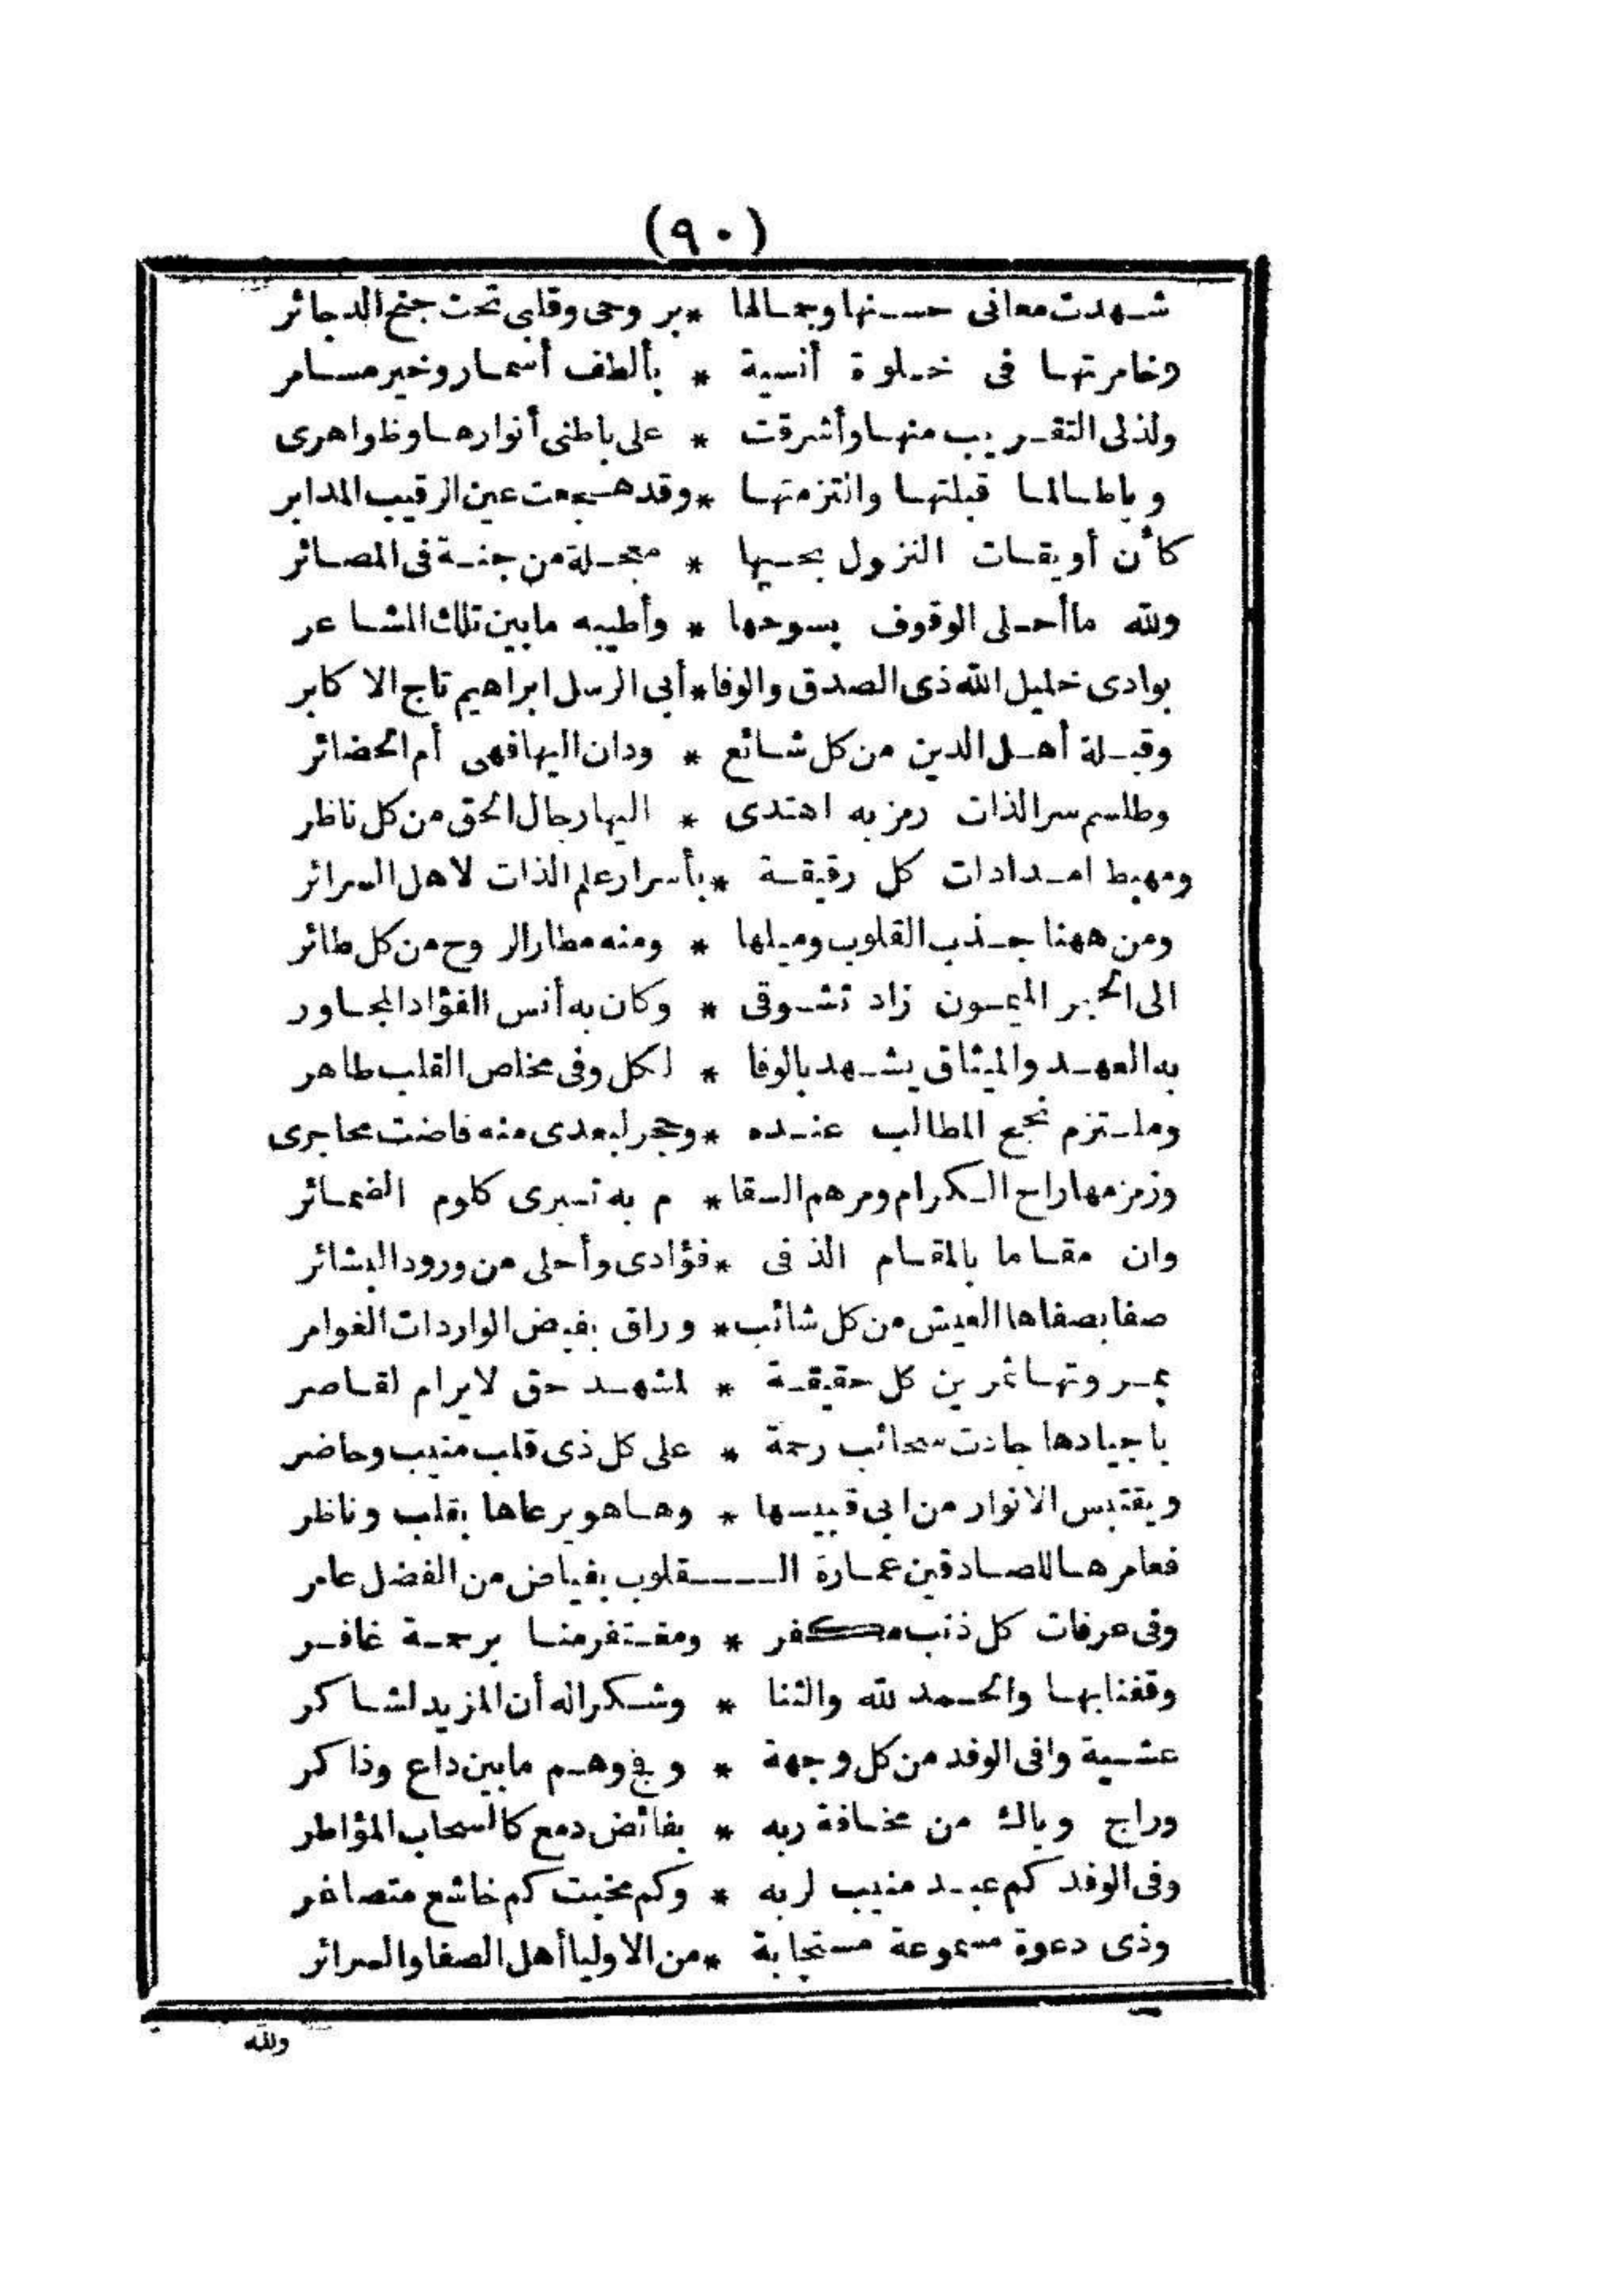 (٩٠)
شهدت معانى حسنها وجمالها * بروحى وقلبى تحت جنح الدجائر
وخامرتها فى خلوة أنسية * بألطف أسمار وخير مسامر
ولذلى التقريب منها وأشرقت * على باطنى أنوارها وظواهرى
وياطالما قبلتها والتزمتها * وقد هجعت عين الرقيب المدابر
كأن أويقات النزول بحيها * معجلة من جنة فى المصائر
ولله ما أحلى الوقوف بسوحها * وأطيبه مابين تلك المشاعر
بوادى خليل الله ذى الصدق والوفا * أبى الرسل ابراهيم تاج الاكابر
وقبلة أهل الدين من كل شائع * ودان اليها فهى أم الحضائر
وطلسم سر الذات رمز به اهتدى * اليها رجال الحق من كل ناظر
ومهبط امدادات كل رقيقة * بأسرار علم الذات لاهل السرائر
ومن ههنا جذب القلوب وميلها * ومنه مطار الروح من كل طائر
الى الحجر الميمون زاد تشوقى * وكان به أنس الفؤاد المجاور
به العهد والميثاق يشهد بالوفا * لكل وفى مخلص القلب طاهر
وملتزم نجح المطالب عنده * وحجر لبعدى منه فاضت محاجرى
وزمزمها راح الكرام ومرهم السقا * م به تبرى كلوم الضمائر
وان مقاما بالمقام الذ فى * فؤادى وأحلى من ورود البشائر
صفا بصفاها العيش من كل شائب * وراق بفيض الواردات الغوامر
بمروتها تمرين كل حقيقة * لمشهد حق لايرام لقاصر
باجيادها جادت سحائب رحمة * على كل ذى قلب منيب وحاضر
ويقتبس الانوار من ابى قبيسها * وهاهو يرعاها بقلب وناظر
فعامرها للصادقين عمارة الـــقلوب بفياض من الفضل عامر
وفى عرفات كل ذنب مكفر * ومغتفر منا برحمة غافر
وقفنا بها والحمد لله والثنا * وشكرا له أن المزيد لشاكر
عشية وافى الوفد من كل وجهة * وفج وهم مابين داع وذاكر
وراج وباك من مخافة ربه * بفائض دمع كالسحاب المؤاطر
وفى الوفد كم عبد منيب لربه * وكم مخبت كم خاشع متصاغر
وذى دعوة مسموعة مستجابة * من الاوليا أهل الصفا والسرائر
ولله